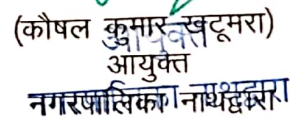 (कौषल कुमार खटूमरा)
आयुक्त
नगरपालिका नाथद्वारा